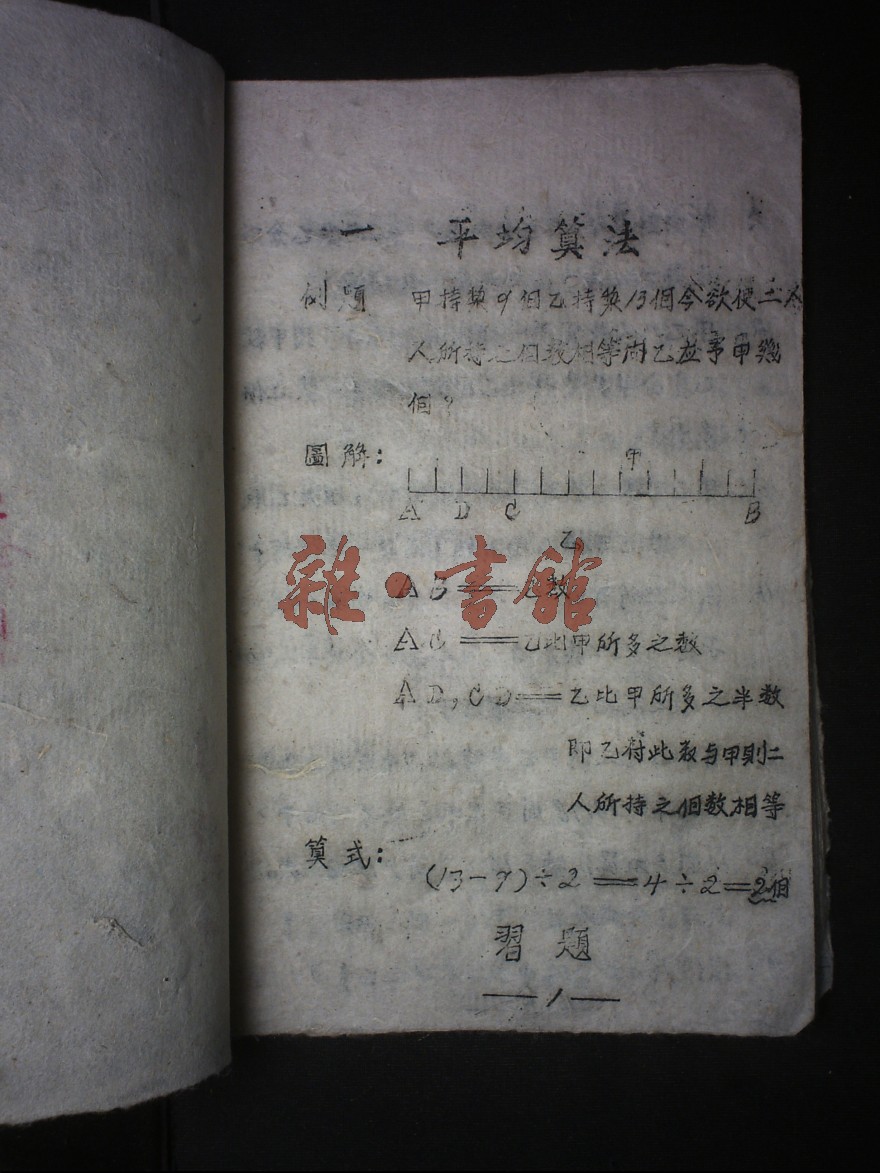 一 平均算法
例題 甲持梨9個乙持梨13個今欲使二
人所持之個數相等問乙应予甲幾
個?
圖解:
甲
A D C B
乙
雜·書館
AB＝乙数
AC＝乙比甲所多之数
AD,CD＝乙比甲所多之半数
即乙将此数与甲则二
人所持之個数相等
算式:
(13-9)÷2＝4÷2＝2個
習題
—1—